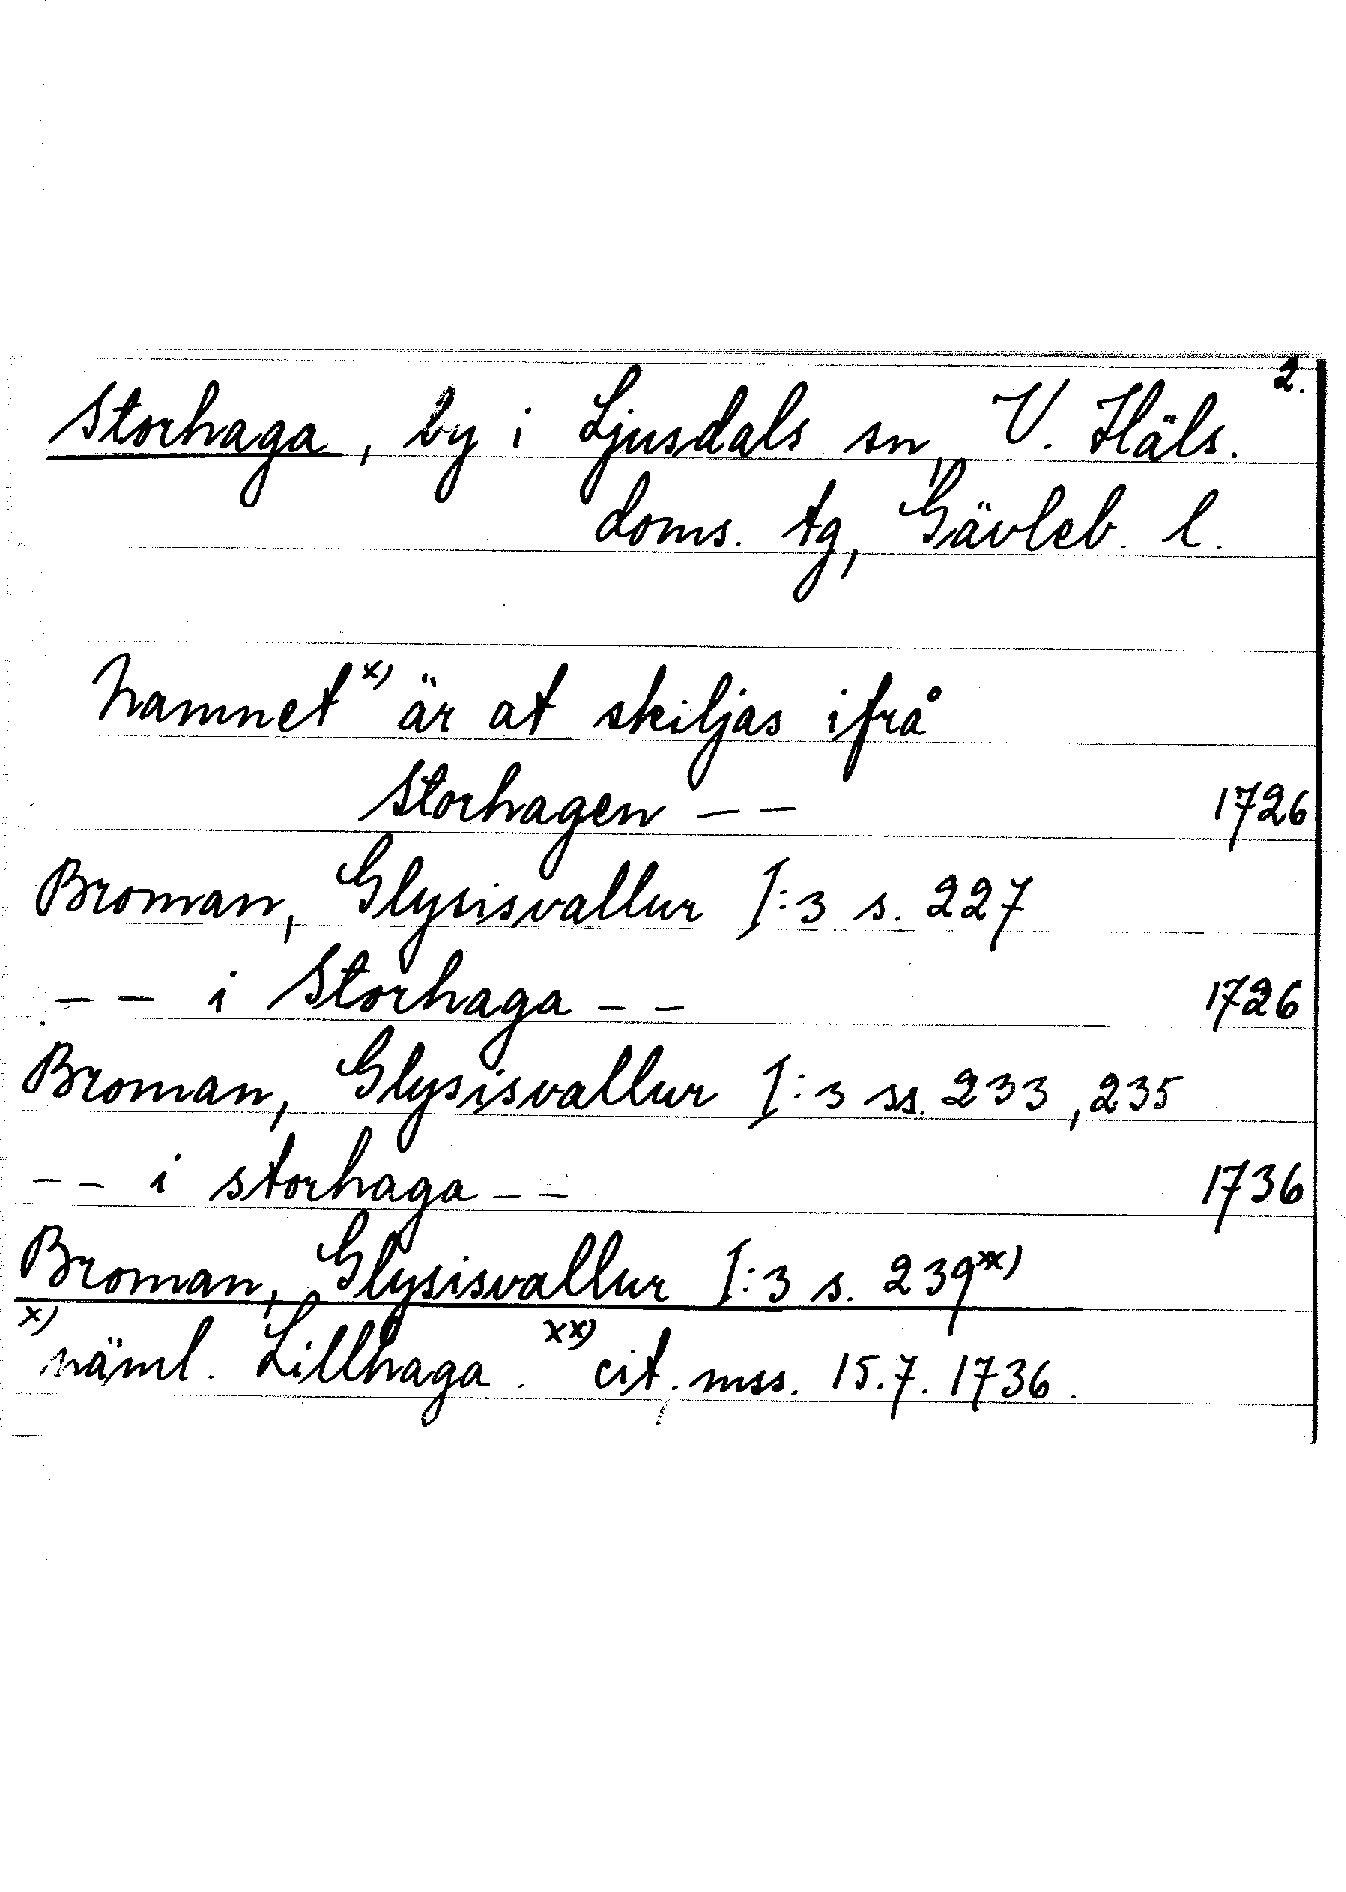 2.
Storhaga, by i Ljusdals sn, V. Häls.
doms. tg, Gävleb. l.
Namnet x) är at skiljas ifrå
Storhagen – – 1726
Broman, Glysisvallur I:3 s. 227
– – i Storhaga – – 1726
Broman, Glysisvallur I:3 ss. 233, 235
– – i storhaga – – 1736
Broman, Glysisvallur I:3 s. 239 xx)
x) näml. Lillhaga. xx) cit. mss. 15.7.1736.